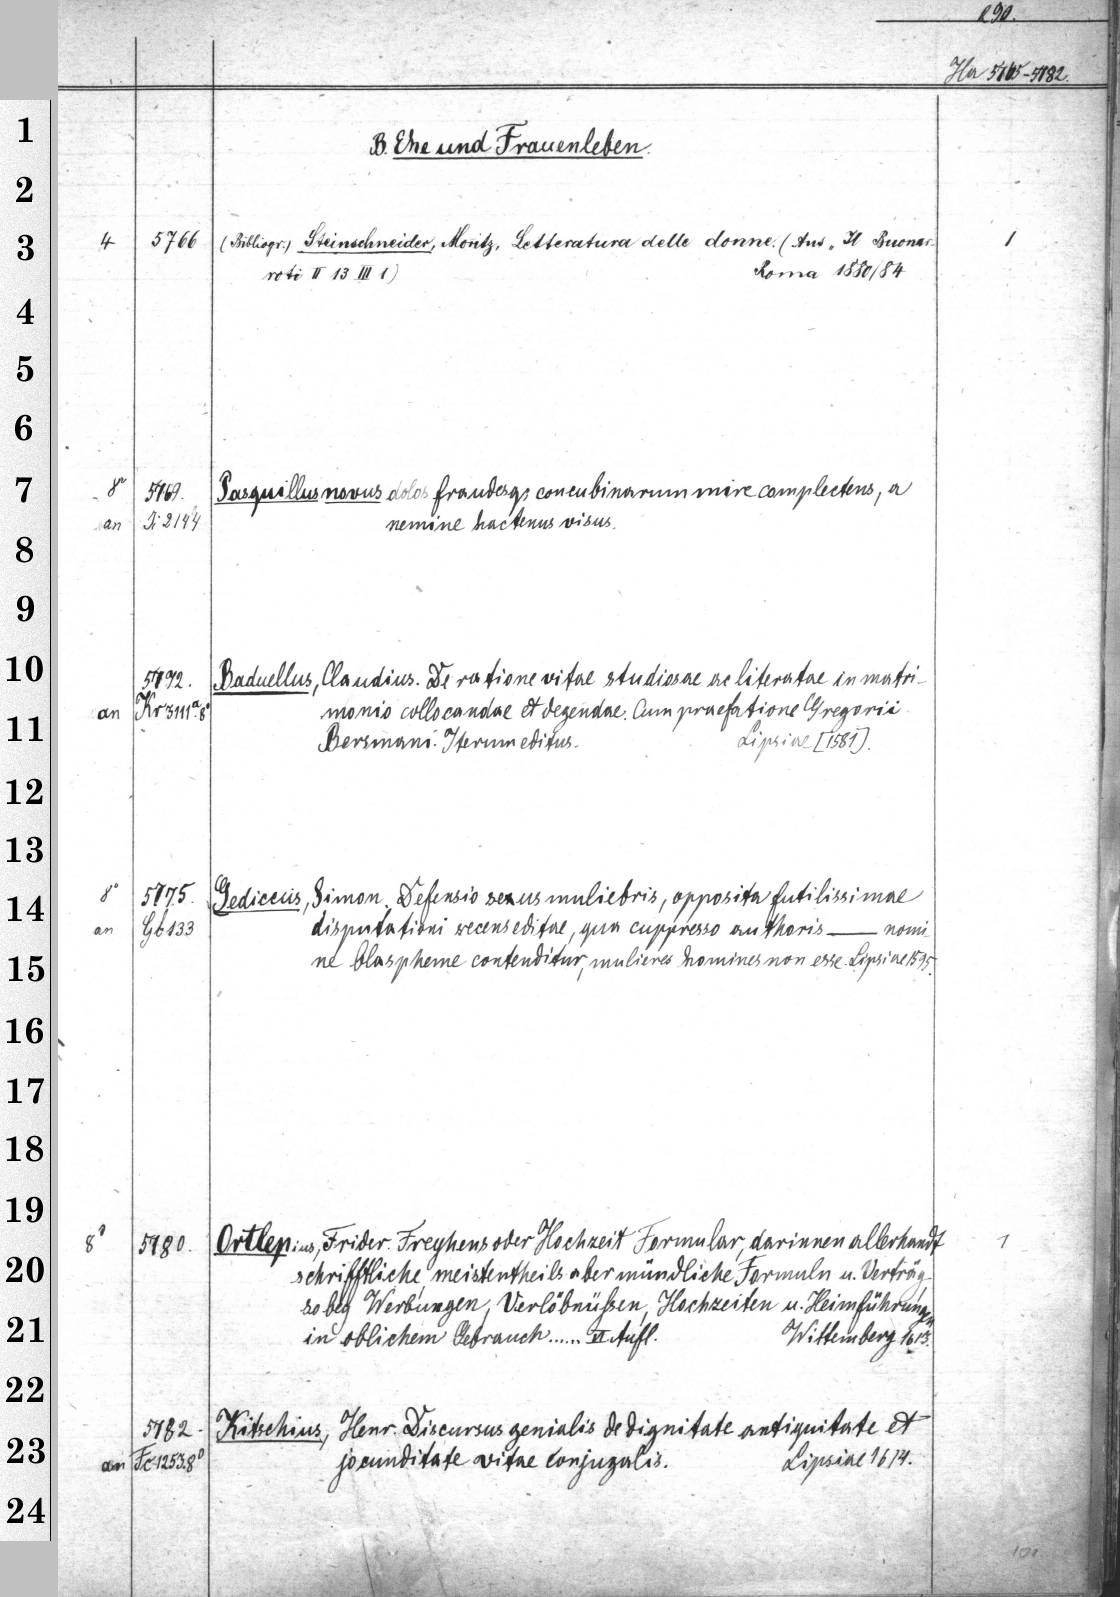 290.
Ha 5765-5782.
B. Ehe und Frauenleben.
4 5766 (Bibliogr.) Steinschneider, Moritz, Letteratura delle donne. (Aus „Il Buonar- 1
roti II 13 III 1) Roma 1880/84
8° 5769. Pasquillus novus dolos fraudesq; concubinarum mire complectens, a
an Xi 2144 nemine hactenus visus.
5772. Baduellus, Claudius. De ratione vitae studiosae ac literatae in matri-
an Kr 3111a 8° monio collocandae et degendae. Cum praefatione Gregorii
Bersmani. Iterum editus. Lipsiae [1581].
8° 5775. Gediccus, Simon. Defensio sexus muliebris, opposita futilissimae
an Gb 133 disputationi recens editae, qua suppresso authoris —— nomi
ne blaspheme contenditur, mulieres homines non esse. Lipsiae 1595.
8° 5780. Ortlepius, Frider. Freyhens oder Hochzeit Formular, darinnen allerhandt 1
schrifftliche, meistentheils aber mündliche Formuln u. Verträg
so bey Werbungen, Verlöbnüssen, Hochzeiten u. Heimführungen
in oblichem Gebrauch...... VI Aufl. Wittemberg 1613.
5782. Kitschius, Henr. Discursus genialis de dignitate antiquitate et
an Fc 1253.8° jocunditate vitae conjugalis. Lipsiae 1614.
1
2
3
4
5
6
7
8
9
10
11
12
13
14
15
16
17
18
19
20
21
22
23
24